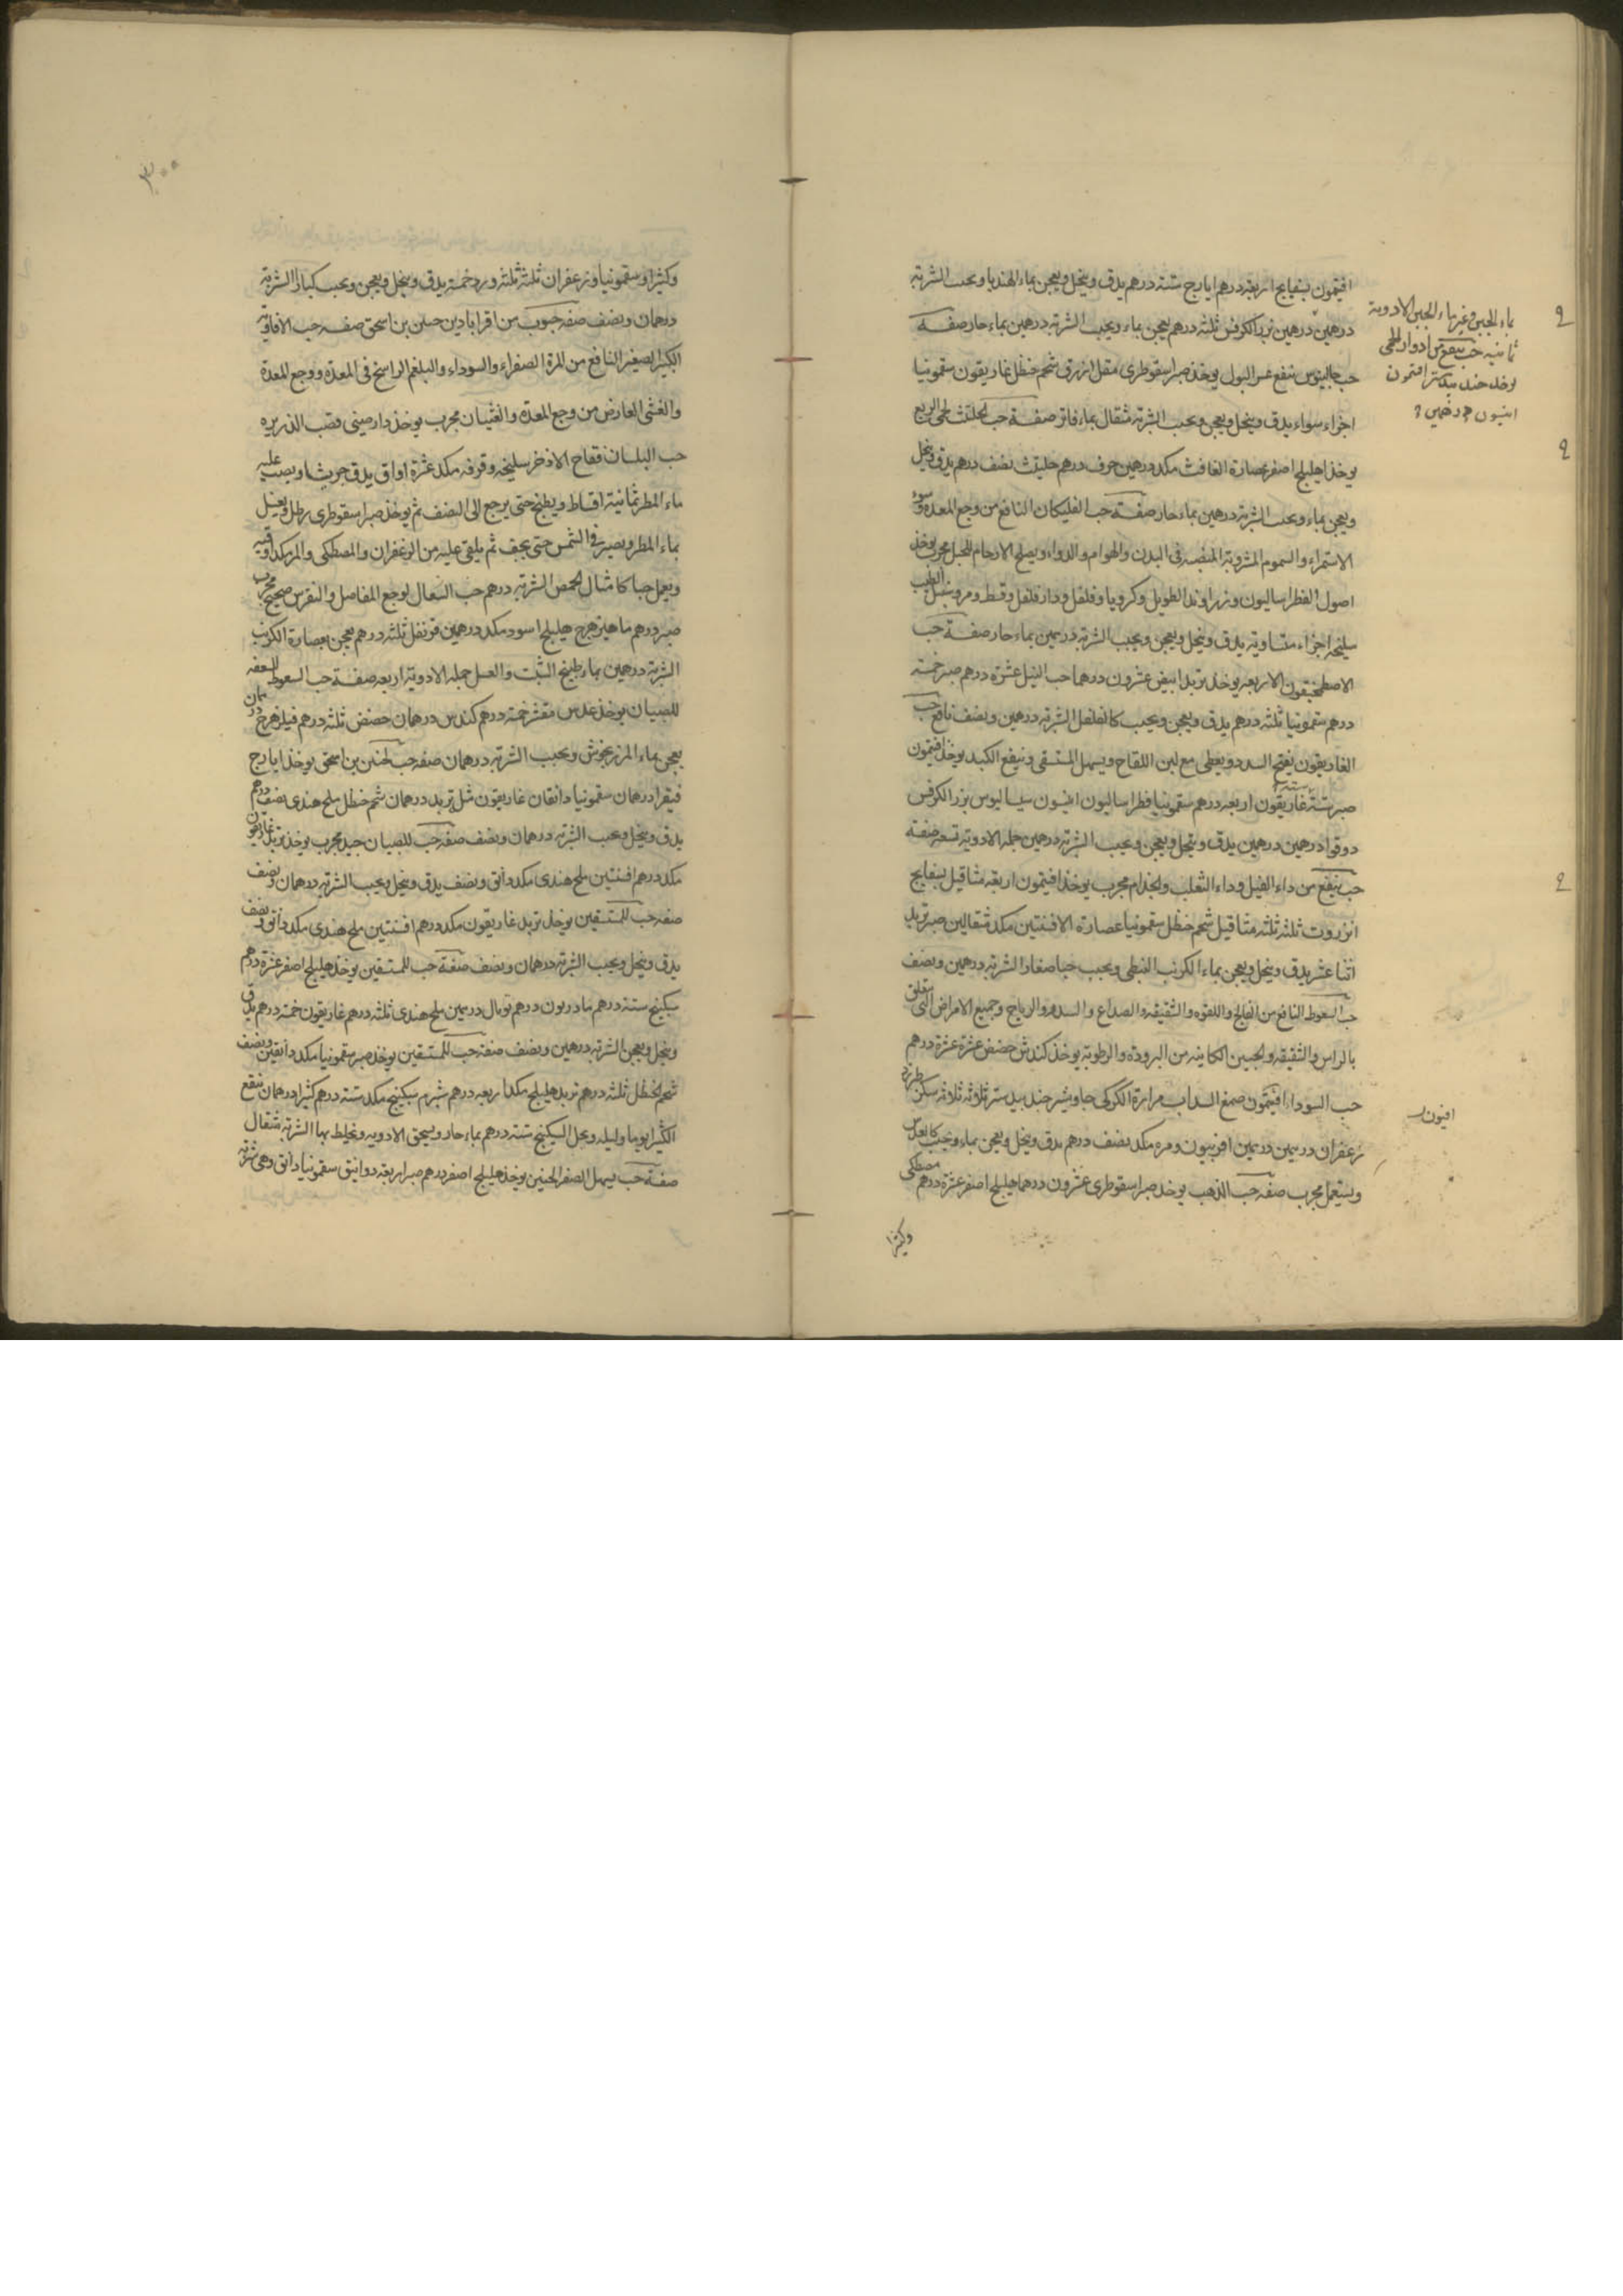 افتيمون بسفايج اربعة درهم ايارج ستة درهم يدق وينخل ويعجن بماء الهندبا ويحبب الشربة
درهمين درهمين بزر الكرفس ثلثة درهم يعجن بماء ويحبب الشربة درهمين بماء حار صفة
حب جالينوس ينفع عسر البول يوخذ صبر اسقوطرى مقل ازرق شحم حنظل غاريقون سقمونيا
اجزاء سواء يدق وينخل ويعجن ويحبب الشربة مثقال بماء فاتر صفة حب الحلتيت لحمى الربع
يوخذ اهليلج اصفر عصارة الغافث مكد درهمين حرف درهم حلتيت نصف درهم يدق وينخل
ويعجن بماء ويحبب الشربة درهمين بماء حار صفة حب الفليكان النافع من وجع المعدة وسوء
الاستمراء والسموم المشروبة المنصبة فى البدن والهوام والدواء ويصلح الارحام للحبل مجرب يوخذ
اصول الفطراساليون وزراوند الطويل وكرويا وفلفل ودارفلفل وقسط ومر وسنبل الطيب
سليخه اجزاء متساوية يدق وينخل ويعجن ويحبب الشربة درهمين بماء حار صفة حب
الاصطمخيقون الاربعه يوخذ تربد ابيض عشرون درهما حب النيل عشرة درهم صبر خمسة
درهم سقمونيا ثلثة درهم يدق ويعجن ويحبب كالفلفل الشربة درهمين ونصف نافع حب
الغاريقون يفتح السدد ويعطى مع لبن اللقاح ويسهل المستسقى وينفع الكبد يوخذ افتيمون
صبر ستة غاريقون اربعه درهم سقمونيا فطراساليون انيسون سيساليوس بزر الكرفس
دوقوا درهمين درهمين يدق وينخل ويعجن ويحبب الشربة درهمين جمله الادوية تسعه صفة
حب ينفع من داء الفيل وداء الثعلب والجذام مجرب يوخذ افتيمون اربعة مثاقيل بسفايج
انزروت ثلثه ثلثه مثاقيل شحم حنظل سقمونيا عصارة الافسنتين مكد مثقالين صبر تربد
اثنا عشر يدق وينخل ويعجن بماء الكرنب النبطى ويحبب حبا صغارا الشربة درهمين ونصف
حب السعوط النافع من الفالج واللقوه والشقيقه والصداع والسدد والرياح وجميع الامراض التى يتعلق
بالراس والشقيقه والجبين الكاينه من البرودة والرطوبة يوخذ كندش حضض عشرة عشرة درهم
حب السوداء افتيمون صمغ السداب مرارة الكركى جاوشير جندبيدستر ثلاثه ثلاثه سكر طبرزد
زعفران درهمين درهمين افربيون ومره مكد نصف درهم يدق وينخل ويعجن بماء ويحبب كالعدس
ويستعمل مجرب صفه حب الذهب يوخذ صبر اسقوطرى عشرون درهما هليلج اصفر عشرة درهم مصطكى
وكثيرا
بماء الجبن وغير ماء الجبن الادوية
ثمانيه حب ينفع من ادوار الحمى
يوخذ جند بيدستر افتيمون
افيون
٣٠٠
وكثيرا وسقمونيا وزعفران ثلثة ثلثه ورد خمسة يدق وينخل ويعجن ويحبب كبارا الشربة
درهمان ونصف صفه حبوب من اقرابادين حنين بن اسحق صفه حب الافاويه
الكبير الصغير النافع من المرة الصفراء والسوداء والبلغم الراسخ فى المعدة ووجع المعدة
والغشى العارض من وجع المعدة والغثيان مجرب يوخذ دارصينى قصب الذريره
حب البلسان فقاح الاذخر سليخه وقرفه مكد عشرة اواق يدق جريشا ويصب عليه
ماء المطر ثمانية اقساط ويطبخ حتى يرجع الى النصف ثم يوخذ صبر اسقوطرى رطل ويغسل
بماء المطر ويصير فى الشمس حتى يجف ثم يلقى عليه من الزعفران والمصطكى والمر مكد اوقيه
ويعمل حبا كامثال الحمص الشربة درهم حب السعال لوجع المفاصل والنقرس صحيح مجرب
صبر درهم ماهيزهرج هليلج اسود مكد درهمين قرنفل ثلثه درهم يعجن بعصارة الكرنب
الشربة درهمين بماء طبيخ الشبت والعسل جمله الادوية اربعه صفة حب السعوط للسعفه
للصبيان يوخذ عدس مقشر خمسة درهم كندس درهمان حضض ثلثه درهم فيلزهرج درهمان
يعجن بماء المرزنجوش ويحبب الشربة درهمان صفه حب لحنين بن اسحق يوخذ ايارج
فيقرا درهمان سقمونيا دانقان غاريقون مثل تربد درهمان شحم حنظل ملح هندى نصف درهم
يدق وينخل ويحبب الشربة درهمان ونصف صفه حب للصبيان جيد مجرب يوخذ تربد غاريقون
مكد درهم افسنتين ملح هندى مكد دانق ونصف يدق وينخل ويحبب الشربة درهمان ونصف
صفه حب للمستسقين يوخذ تربد غاريقون مكد درهم افسنتين ملح هندى مكد دانق ونصف
يدق وينخل ويحبب الشربة درهمان ونصف صفة حب للمستسقين يوخذ هليلج اصفر عشرة درهم
سكبينج ستة درهم مازريون درهم توبال درهمين ملح هندى ثلثه درهم غاريقون خمسة درهم يدق
وينخل ويعجن الشربة درهمين ونصف صفة حب للمستسقين يوخذ صبر سقمونيا مكد دانقين ونصف
شحم الحنظل ثلثه درهم تربد هليلج مكد اربعه درهم شبرم سكبينج مكد ستة درهم كثيرا درهمان ينقع
الكثيرا يوما وليله ويحل السكبينج ستة درهم بماء حار ويسحق الادويه ويخلط بها الشربة مثقال
صفة حب يسهل الصفرا لحنين يوخذ هليلج اصفر درهم صبر اربعة دوانيق سقمونيا دانق وهى شربة